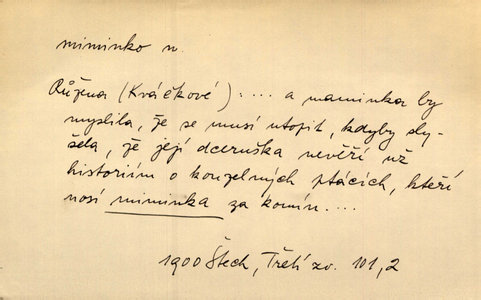 miminko n.
Růžena (Kráčkové): .... a maminka by
myslila, že se musí utopit, kdyby sly-
šela, že její dceruška nevěří už
historiím o kouzelných ptácích, kteří
nosí miminka za komín....
1900 Štech, Třetí zv. 101,2